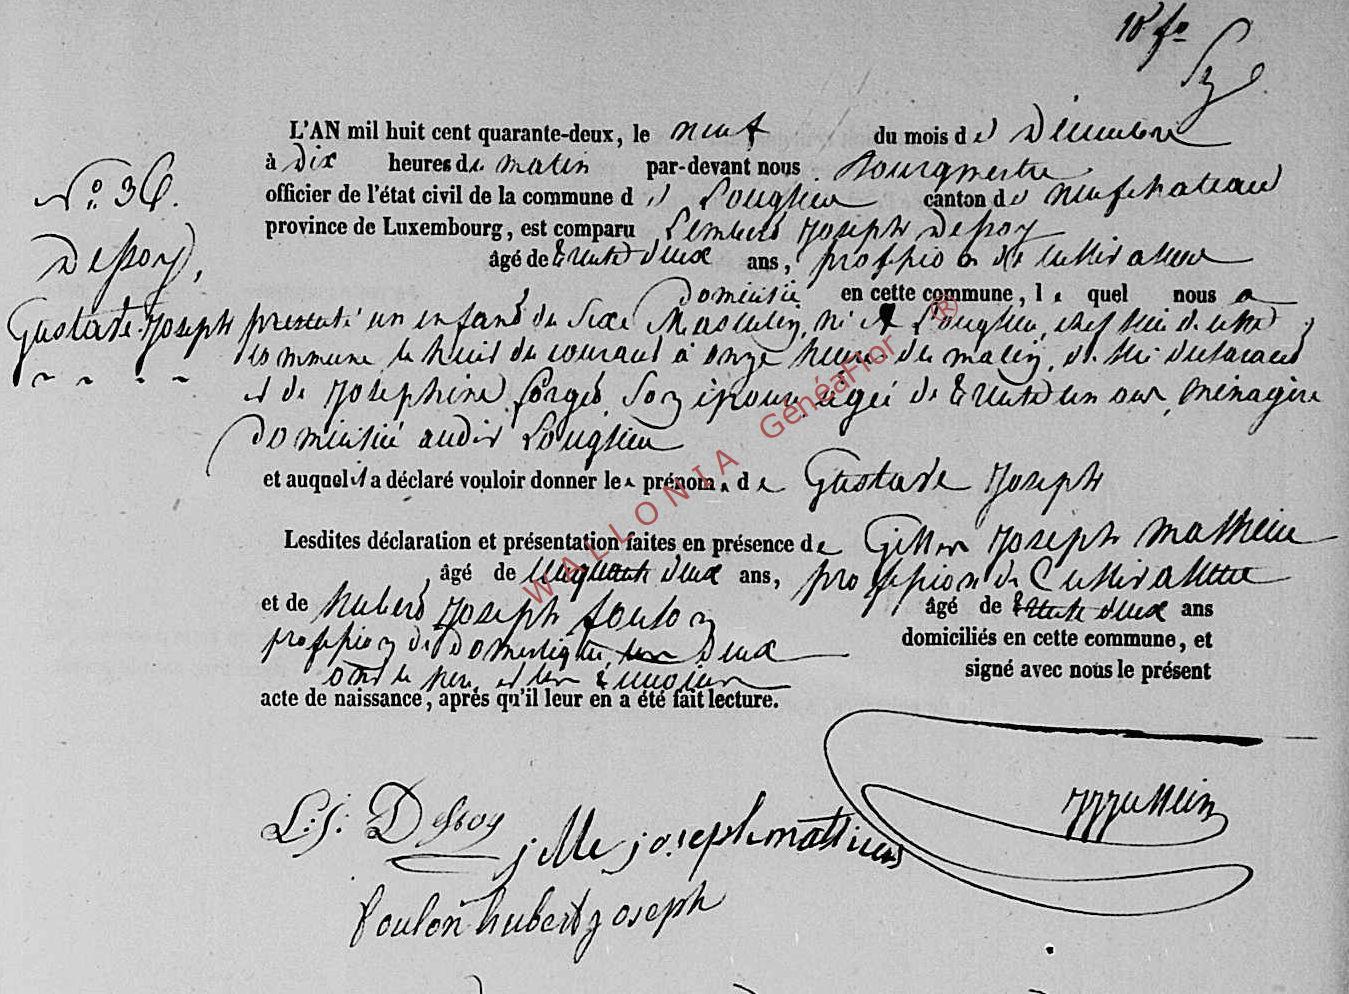 10e fo
L'AN mil huit cent quarante-deux, le neuf du mois de Décembre
à Dix heures du matin par-devant nous Bourgmestre
officier de l'état civil de la commune de Longlier canton de neufchateau
province de Luxembourg, est comparu Lembert Joseph Dessoy
âgé de trente deux ans, profession de cultivateur
Domicilié en cette commune, lequel nous a
No. 36.
Dessoy,
Gustave Joseph
présenté un enfant du sexe Masculin, né à Longlier, chef lieu de cette
commune le huit du courant à onze heure du matin, de lui déclarant
et de Josephine forget, Son épouse, agée de trente un ans, ménagère
Domicilié audit Longlier
et auquel il a déclaré vouloir donner les prénoms de Gustave Joseph
Lesdites déclaration et présentation faites en présence de Gille Joseph Mathieu
âgé de cinquante deux ans, profession de Cultivateur
et de hubert Joseph foulon âgé de trente deux ans
profession de Domestique, Deux domiciliés en cette commune, et
ont le père et les témoins signé avec nous le présent
acte de naissance, après qu'il leur en a été fait lecture.
L: J: Dessoy
jille joseph mathieu
foulon hubert joseph
WALLONIA GenéaFlor ®